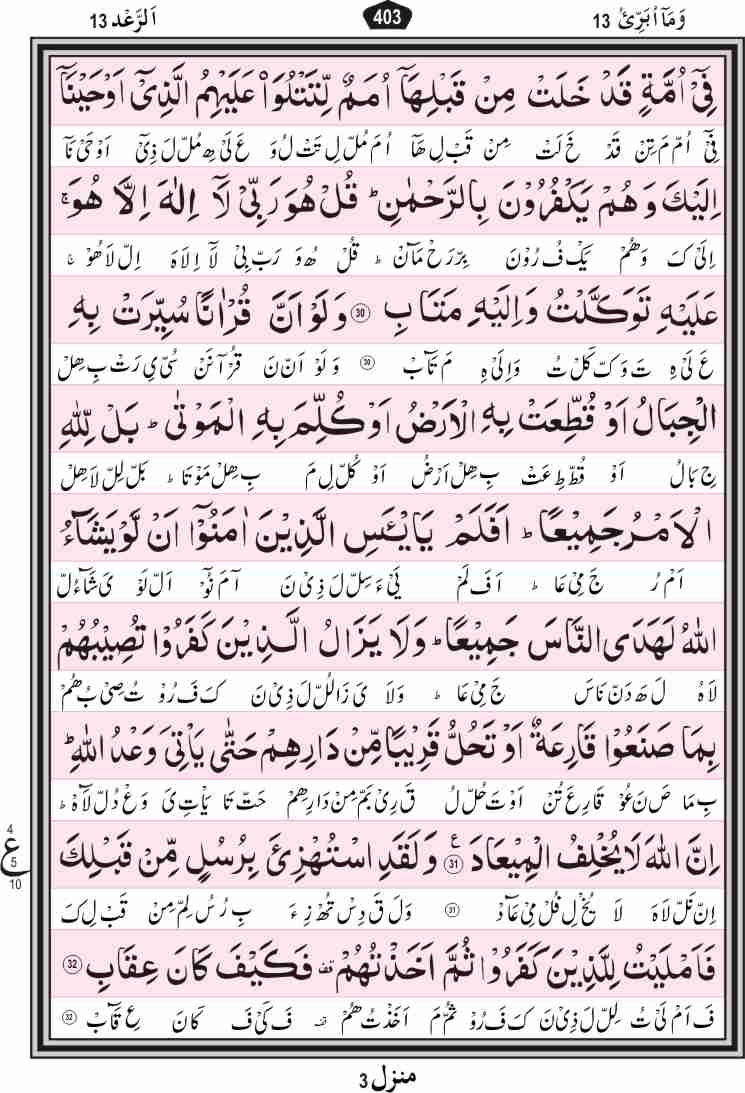 وَمَاۤ اُبَرِّئُ 13 403 اَلرَّعْد 13
فِیْۤ اُمَّةٍ قَدْ خَلَتْ مِنْ قَبْلِهَاۤ اُمَمٌ لِّتَتْلُوَا۟ عَلَیْهِمُ الَّذِیْۤ اَوْحَیْنَاۤ
فِیْۤ اُمّ مَ تِنْ قَدْ خَ لَتْ مِنْ قَبْ لِ هَاۤ اُ مَ مُلّ لِ تَتْ لُ وَ عَ لَیْ هِ مُلّ لَ ذِیْۤ اَوْ حَیْ نَاۤ
اِلَیْكَ وَ هُمْ یَكْفُرُوْنَ بِالرَّحْمٰنِ ؕ قُلْ هُوَ رَبِّیْ لَاۤ اِلٰهَ اِلَّا هُوَ ۚ
اِلَیْ كَ وَ هُمْ یَكْ فُ رُوْنَ بِرّ رَحْ مَانْ ؕ قُلْ هُ وَ رَبّ بِیْ لَاۤ اِلَاهَ اِلّ لَا هُوْ ۚ
عَلَیْهِ تَوَكَّلْتُ وَ اِلَیْهِ مَتَابِ 30 وَ لَوْ اَنَّ قُرْاٰنًا سُیِّرَتْ بِهِ
عَ لَیْ هِ تَ وَكّ كَلْ تُ وَ اِلَیْ هِ مَ تَآبْ 30 وَ لَوْ اَنّ نَ قُرْ آ نَنْ سُیّ یِ رَتْ بِ هِلْ
الْجِبَالُ اَوْ قُطِّعَتْ بِهِ الْاَرْضُ اَوْ كُلِّمَ بِهِ الْمَوْتٰی ؕ بَلْ لِّلّٰهِ
جِ بَالُ اَوْ قُطّ طِ عَتْ بِ هِلْ اَرْضُ اَوْ كُلّ لِ مَ بِ هِلْ مَوْ تَا ؕ بَلّ لِلّ لَا هِلْ
الْاَمْرُ جَمِیْعًا ؕ اَفَلَمْ یَایْـَٔسِ الَّذِیْنَ اٰمَنُوْۤا اَنْ لَّوْ یَشَآءُ
اَمْ رُ جَ مِیْ عَا ؕ اَ فَ لَمْ یَیْ ءَ سِلّ لَ ذِیْ نَ آ مَ نُوْۤ اَلّ لَوْ یَ شَآءُلّ
اللّٰهُ لَهَدَی النَّاسَ جَمِیْعًا ؕ وَ لَا یَزَالُ الَّذِیْنَ كَفَرُوْا تُصِیْبُهُمْ
لَاهُ لَ هَ دَنّ نَاسَ جَ مِیْ عَا ؕ وَلَا یَ زَالُلّ لَ ذِیْ نَ كَ فَ رُوْ تُ صِیْ بُ هُمْ
بِمَا صَنَعُوْا قَارِعَةٌ اَوْ تَحُلُّ قَرِیْبًا مِّنْ دَارِهِمْ حَتّٰی یَاْتِیَ وَعْدُ اللّٰهِ ؕ
بِ مَا صَ نَ عُوْ قَارِ عَ تُنْ اَوْ تَ حُلّ لُ قَ رِیْ بَمّ مِنْ دَارِ هِمْ حَتّ تَا یَاْتِ یَ وَعْ دُلّ لَاهْ ؕ
اِنَّ اللّٰهَ لَا یُخْلِفُ الْمِیْعَادَ 31 وَ لَقَدِ اسْتُهْزِئَ بِرُسُلٍ مِّنْ قَبْلِكَ
ع 4 5 10
اِنّ نَلّ لَاهَ لَا یُخْ لِ فُلْ مِیْ عَآدْ 31 وَلَ قَ دِسْ تُهْ زِ ءَ بِ رُ سُ لِمّ مِنْ قَبْ لِ كَ
فَاَمْلَیْتُ لِلَّذِیْنَ كَفَرُوْا ثُمَّ اَخَذْتُهُمْ ۫ فَكَیْفَ كَانَ عِقَابِ 32
فَ اَمْ لَیْ تُ لِلّ لَ ذِیْ نَ كَ فَ رُوْ ثُمّ مَ اَخَذْ تُ هُمْ ۫ فَ كَیْ فَ كَانَ عِ قَآبْ 32
منزل 3